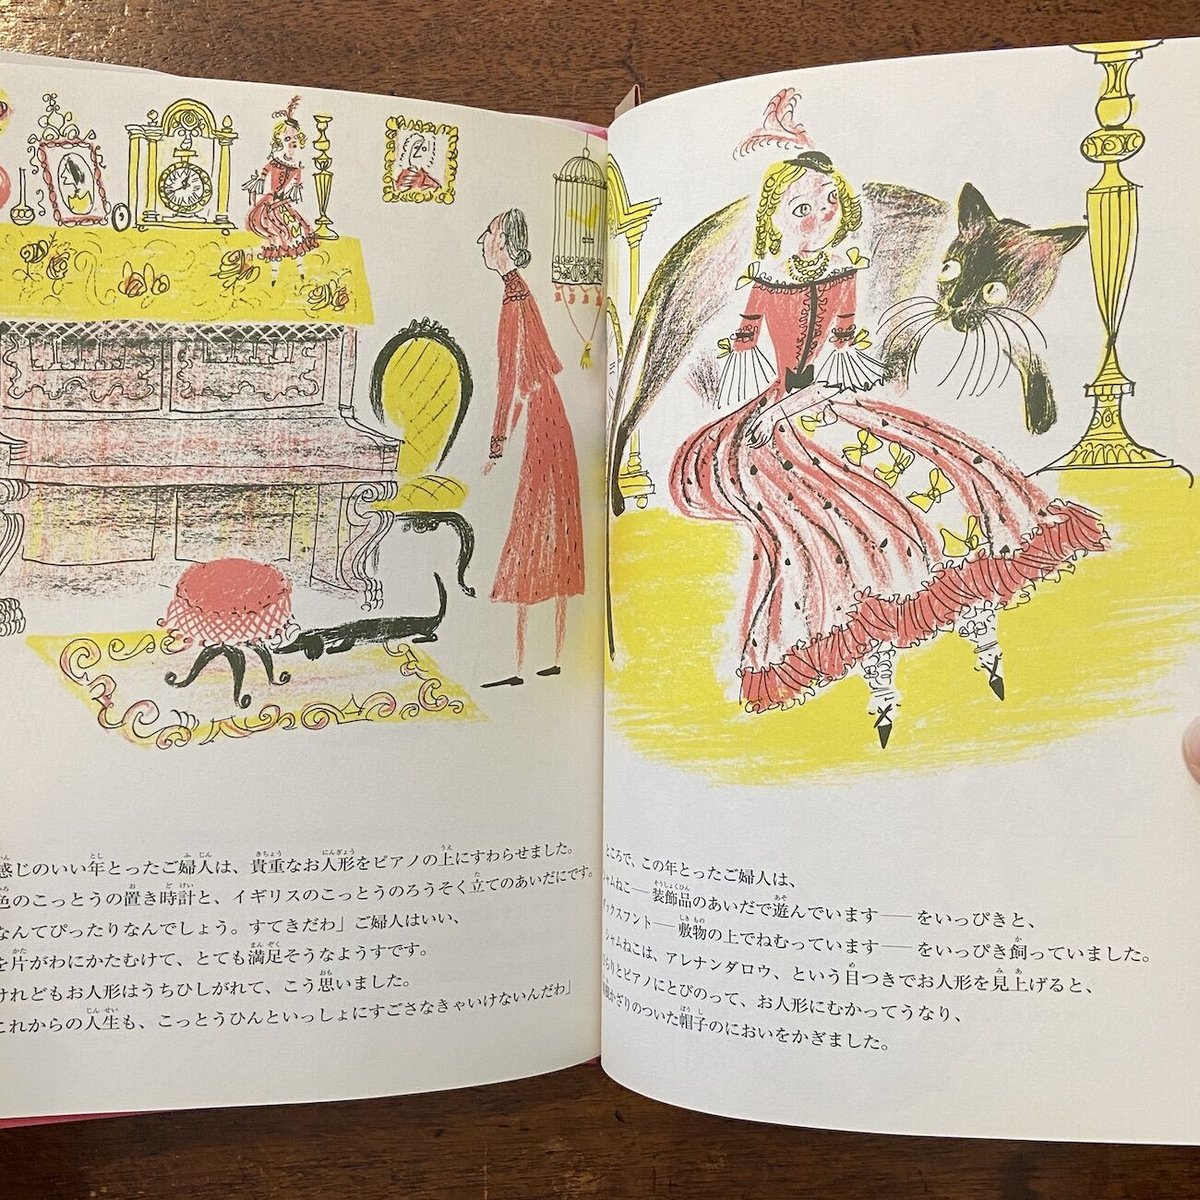 感じのいい年とったご婦人は、貴重なお人形をピアノの上にすわらせました。
色のこっとうの置き時計と、イギリスのこっとうのろうそく立てのあいだにです。
なんてぴったりなんでしょう。すてきだわ」ご婦人はいい、
を片がわにかたむけて、とても満足そうなようすです。
けれどもお人形はうちひしがれて、こう思いました。
これからの人生も、こっとうひんといっしょにすごさなきゃいけないんだわ」
ところで、この年とったご婦人は、
シャムねこ――装飾品のあいだで遊んでいます――をいっぴきと、
ダックスフント――敷物の上でねむっています――をいっぴき飼っていました。
シャムねこは、アレナンダロウ、という目つきでお人形を見上げると、
ひらりとピアノにとびのって、お人形にむかってうなり、
かざりのついた帽子のにおいをかぎました。